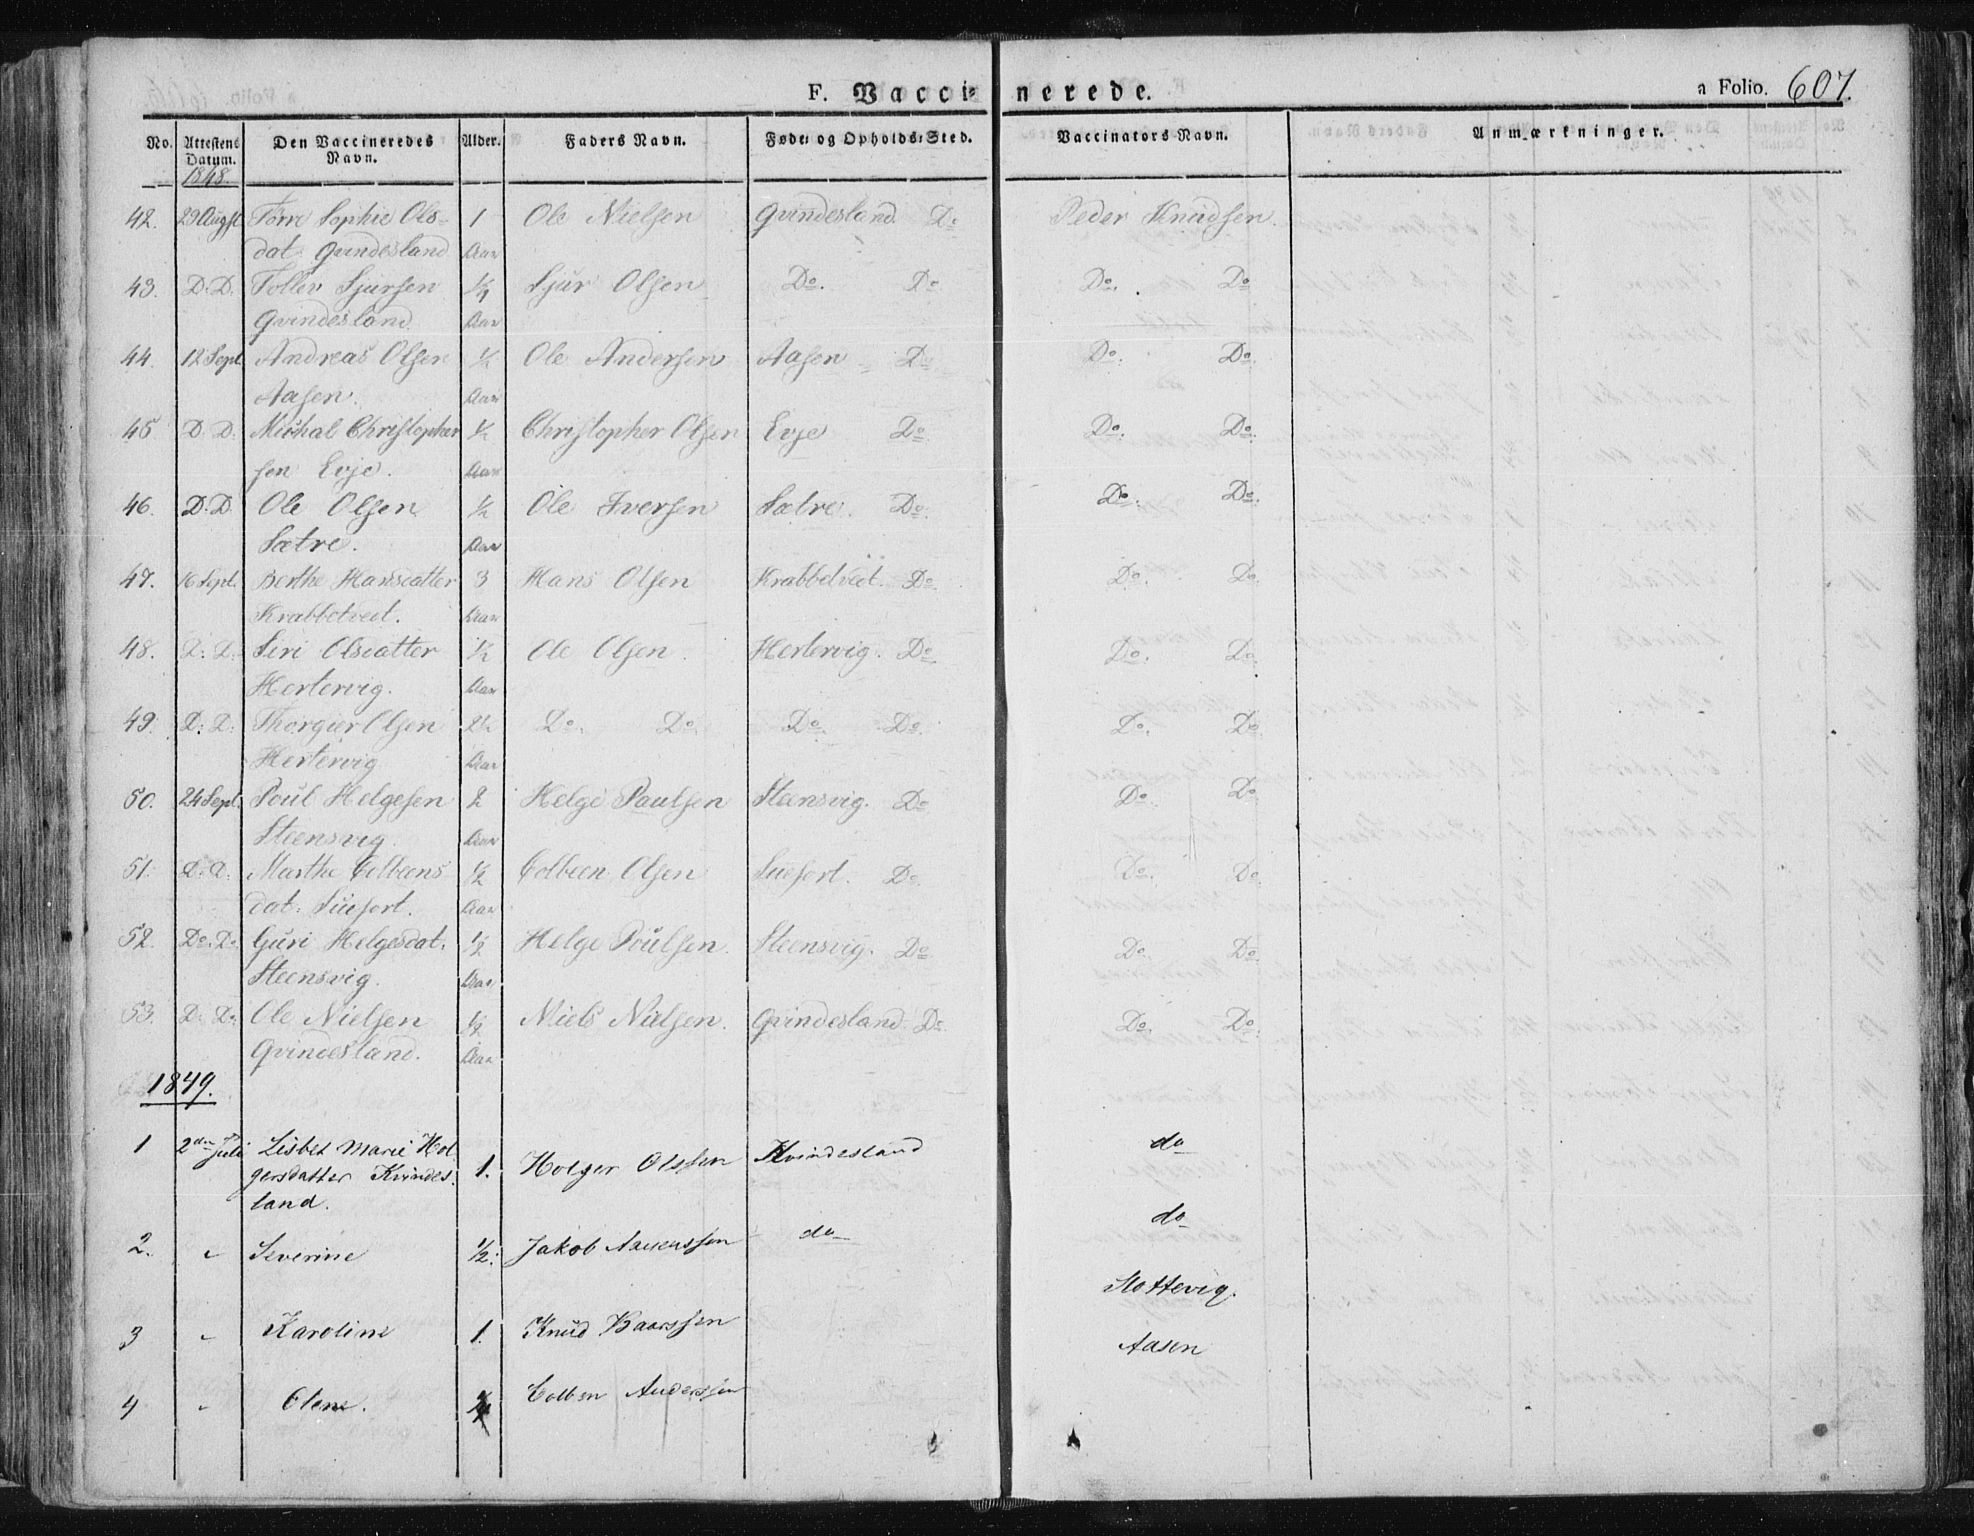 F. Vaccinerede.
a Folio. 607.
No. Attestens Datum. Den Vaccineredes Navn. Alder. Faders Navn. Føde- og Opholds-Sted. Vaccinators Navn. Anmærkninger.
1848.
42. 29 Augst Sophie Ols- 1 Ole Nielsen Qvindesland Do Peder Knudsen.
dat. Qvindesland Aar
43. D. D. Tollev Sjursen 1/4 Sjur Olsen Do. Do Do. Do
Qvindesland. Aar
44 12 Sept. Andreas Olsen 1/2 Ole Andersen Aasen Do Do. Do.
Aasen. Aar
45 D. D. Michal Christopher 1/2 Christopher Olsen Evje Do Do. Do.
sen Evje. Aar
46. D. D. Ole Olsen 1/2 Ole Iversen Sætre. Do. Do. Do.
Sætre. Aar
47. 16 Sept. Berthe Hansdatter 3 Hans Olsen Krabbetveit. Do. Do. Do.
Krabbetveit. Aar
48. D. D. Siri Olsdatter 1/2 Ole Olsen. Hertervig. Do. Do. Do.
Hertervig. Aar
49. D. D. Thorgier Olsen 2 1/2 Do. Do. Do. Do. Do. Do.
Hertervig Aar
50. 24 Sept. Poul Helgesen 2 Helge Paulsen Steensvig. Do Do. Do.
Steensvig. Aar
51. D. D. Marthe Colbeens 1/2 Colbeen Olsen Suefort. Do Do. Do.
dat. Suefort. Aar
52. Do. Do. Guri Helgesdat. 1/2 Helge Poulsen. Steensvig. Do Do. Do.
Steensvig. Aar
53. D. Do. Ole Nielsen 1/2 Niels Nielsen. Qvindesland Do Do. Do.
Qvindesland. Aar
1849.
1 2den Juli Lisbet Marie Hol 1. Holger Olssen Kvindesland do
gersdatter Kvindes.
land.
2. " Severine 1/2. Jakob do do
3 " Karoline 1. Knud Baarssen Slottevig.
4 " Olene. Colben Anderssen Aasen